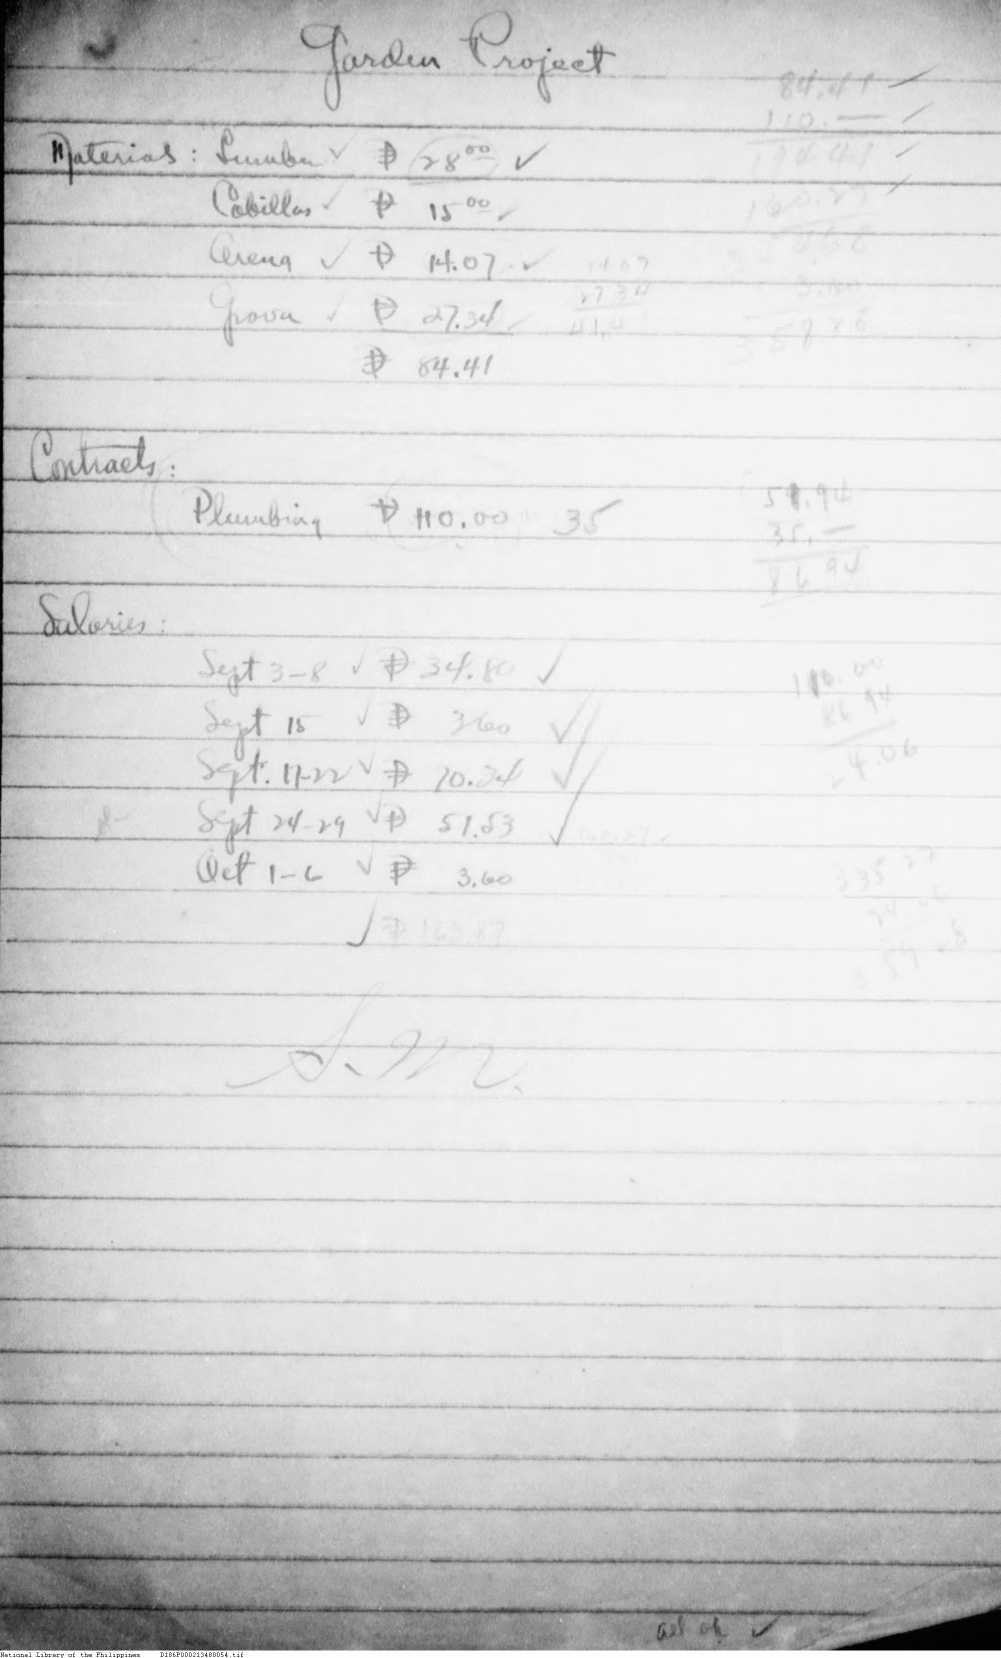 Garden Project
84.41 ✓
110.— ✓
Materials: Lumber ✓ ₱ 28.00 ✓
194.41 ✓
Cabillas ✓ ₱ 15.00 ✓
160.27 ✓
Arena ✓ ₱ 14.07 ✓ 14.07
Grava ✓ ₱ 27.34 ✓ 27.34
₱ 84.41
Contracts:
Plumbing ₱ 110.00 35
35.—
86.94
Salaries:
Sept 3-8 ✓ ₱ 34.80 ✓
Sept 15 ✓ ₱ 3.60 ✓
86.94
Sept. 17-22 ✓ ₱ 70.34 ✓
4.06
Sept 24-29 ✓ ₱ 51.53 ✓
Oct 1-6 ✓ ₱ 3.60
✓ ₱ 163.87
S.M.
ok ✓
National Library of the Philippines D186P000213488054.tif